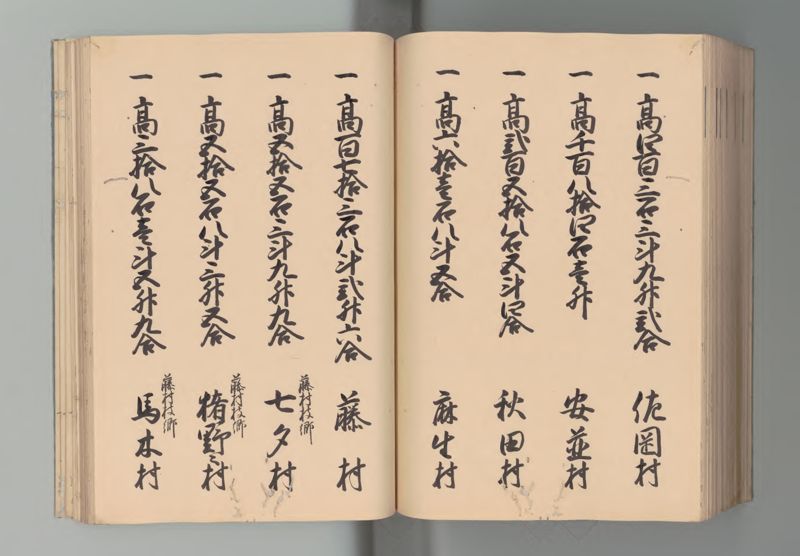 一 高四百三石三斗九升弐合 佐岡村
一 高千百八拾四石壱升 安並村
一 高弐百五拾八石五斗四合 秋田村
一 高六拾壱石八斗五合 麻生村
一 高百七拾三石八斗弐升六合 藤村
藤村枝郷
一 高五拾五石三斗九升九合 七夕村
藤村枝郷
一 高五拾五石八斗三升五合 猪野々村
藤村枝郷
一 高三拾八石壱斗五升九合 馬木村